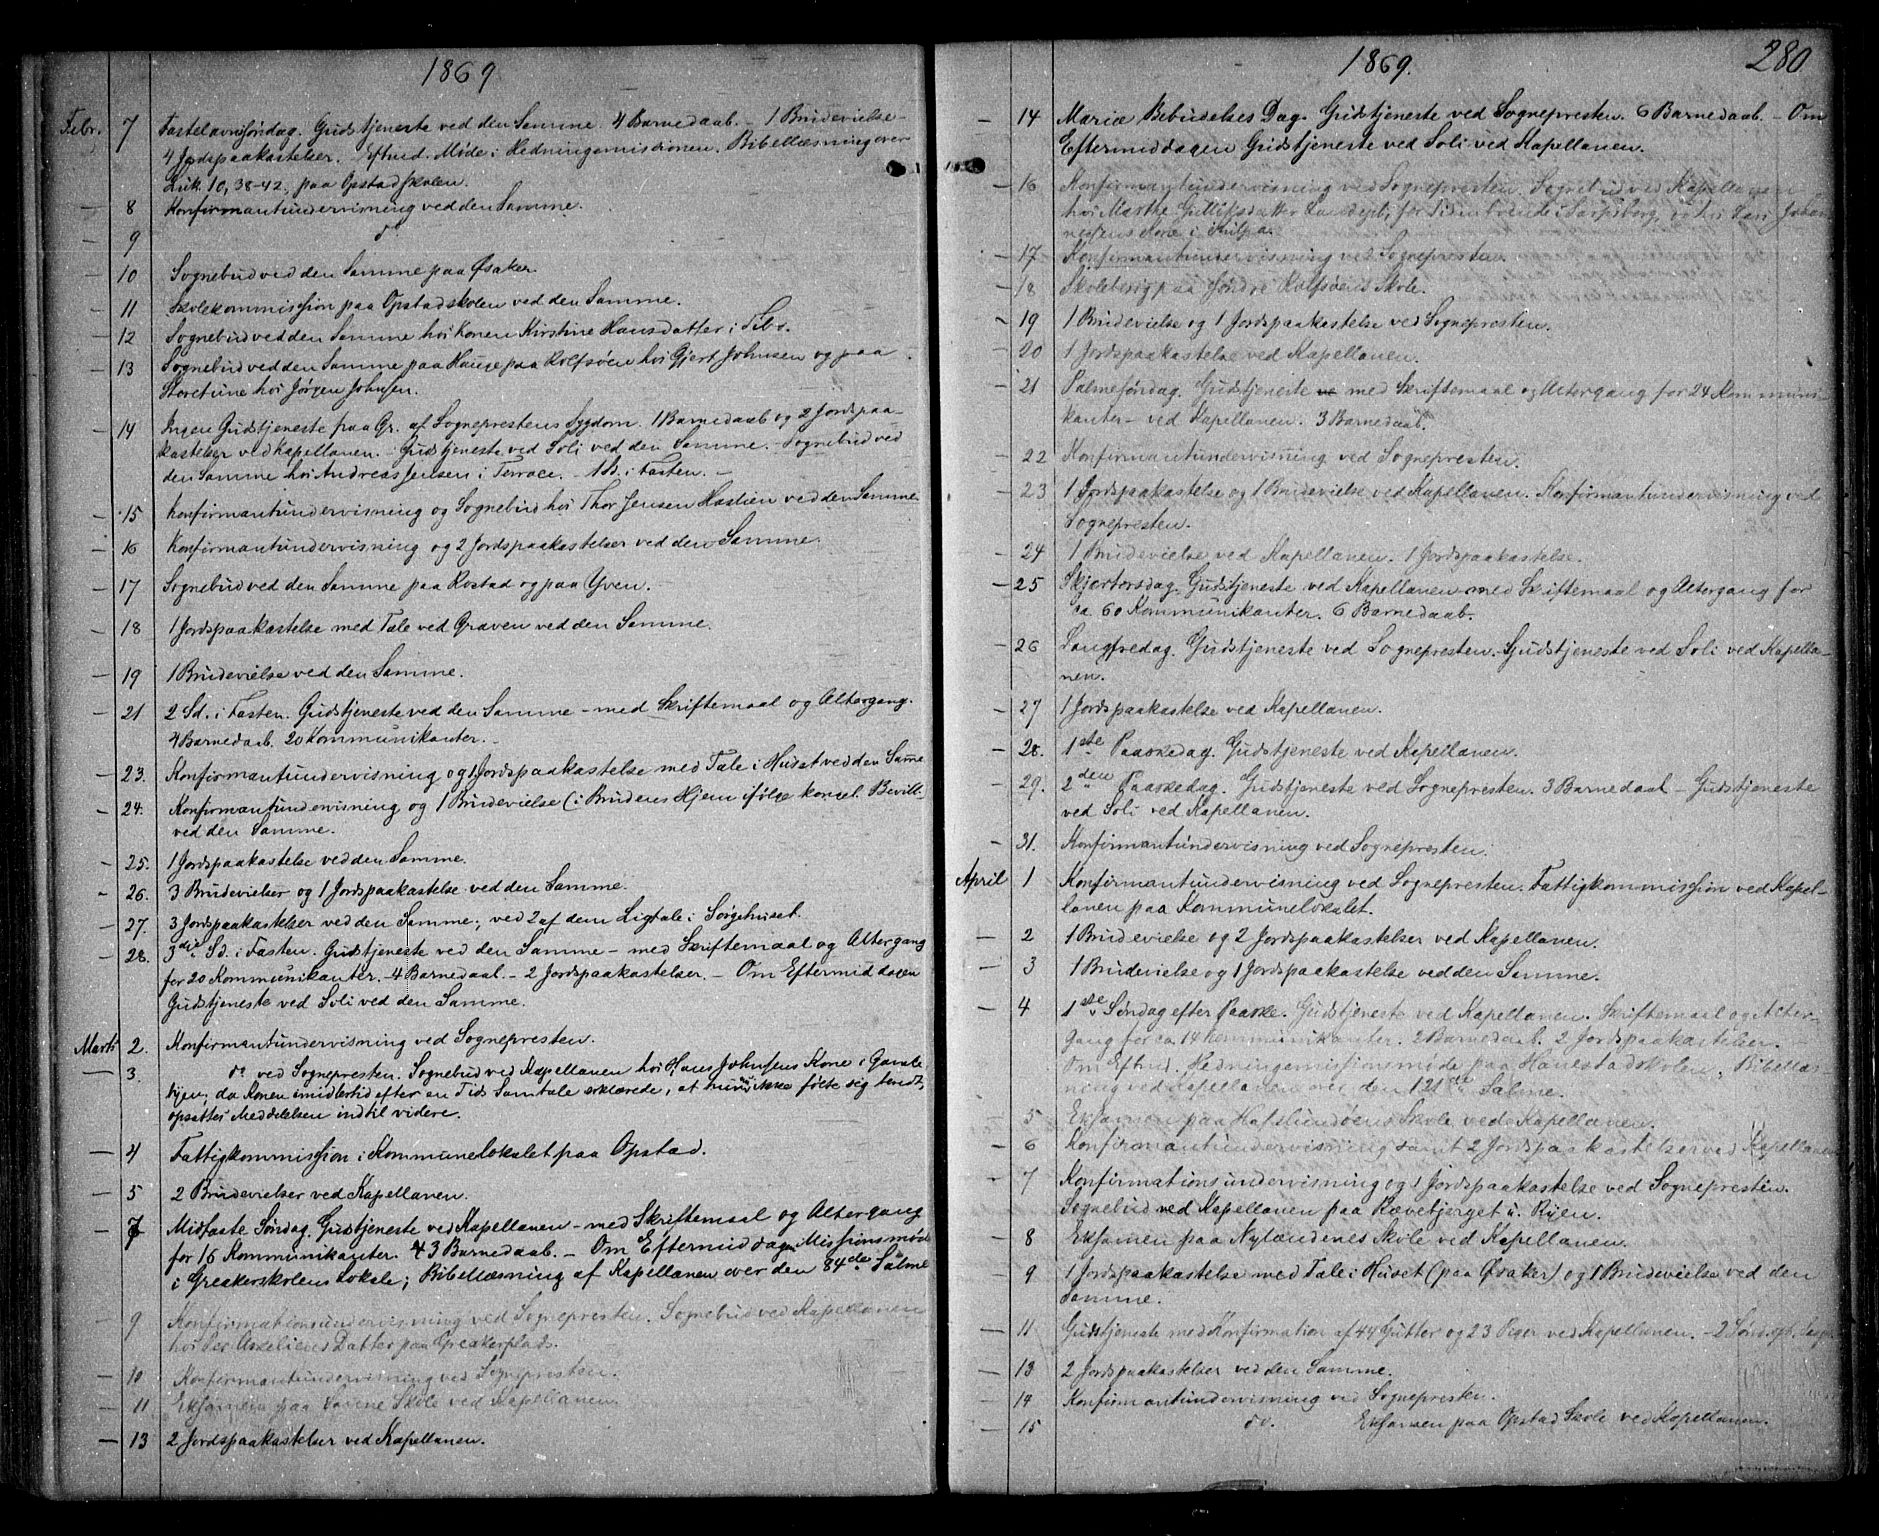 1869
Febr. 7 Fastelavnssøndag. Gudstjeneste ved den Samme. 4 Barnedaab. - 1 Brudevielse -
4 Jordspaakastelser. Eftmd. Møde i Hedningemissionen. Bibellæsning over
Luk. 10, 38-42, paa Opstad skolen.
— 8 Konfirmantundervisning ved den Samme.
— 9 do
— 10 Sognebud ved den Samme paa Øsaker.
— 11 Skolekommission paa Opstadskolen ved den Samme.
— 12 Sognebud ved den Samme hos Konen Kirstine Hansdatter i
— 13 Sognebud ved den Samme paa Hauge paa Rolfsøen hos Gjert Johnsen og paa
Storetune hos Jørgen Johnsen.
— 14 Ingen Gudstjeneste paa Gr. af Sogneprestens Sygdom. 1 Barnedaab og 2 Jordspaa-
kastelser ved Kapellanen. - Gudstjeneste ved Soli ved den Samme. - Sognebud ved
den Samme hos Andreas Jensen i Terrace. - 1 S. i Fasten. -
— 15 Konfirmantundervisning og Sognebud hos Thor Jensen ved den Samme
— 16 Konfirmantundervisning og 2 Jordspaakastelser ved den Samme.
— 17 Sognebud ved den Samme paa Rostad og paa Yven.
— 18 1 Jordspaakastelse med Tale ved Graven ved den Samme.
— 19 1 Brudevielse ved den Samme.
— 21 2 Sd. i Fasten. Gudstjeneste ved den Samme - med Skriftemaal og Altergang.
4 Barnedaab. 20 Kommunikanter. -
— 23. Konfirmantundervisning og 1 Jordspaakastelse med Tale i Huset ved den Samme
— 24. Konfirmantundervisning og 1 Brudevielse (i Brudens Hjem ifølge kongel. Bevill-
ved den Samme.
— 25. 1 Jordspaakastelse ved den Samme.
— 26. 3 Brudevielser og 1 Jordspaakastelse ved den Samme.
— 27. 3 Jordspaakastelser ved den Samme; ved 2 af dem Ligtale i Sørgehuset.
— 28. 3die Sd. i Fasten. Gudstjeneste ved den Samme - med Skriftemaal og Altergang
for 20 Kommunikanter. - 4 Barnedaab. - 2 Jordspaakastelser. - Om Eftermiddagen
Gudstjeneste ved Soli ved den Samme.
Marts 2. Konfirmantundervisning ved Sognepresten.
— 3. do ved Sognepresten. Sognebud ved Kapellanen hos Hans Johnsens Kone i
da Konen imidlertid efter en Tids Samtale erklærede, at hun ikke følte sig
opsattes Meddelelsen indtil videre.
— 4 Fattigkommission i Kommunelokalet paa Opstad.
— 5 2 Brudevielser ved Kapellanen.
— 7 Midfaste Søndag. Gudstjeneste ved Kapellanen - med Skriftemaal og Altergang
for 16 Kommunikanter. 3 Barnedaab. - Om Eftermiddagen Missionsmøde
i Greakerskolens Lokale; Bibellæsning af Kapellanen over den 84de Salme
— 9 Konfirmationsundervisning ved Sognepresten. Sognebud ved Kapellanen
hos Datter paa Greakerplads.
— 10 Konfirmantundervisning ved Sognepresten.
— 11 Eksamen paa Skole ved Kapellanen.
— 13 2 Jordspaakastelser ved Kapellanen.
1869. 280
— 14 Mariæ Bebudelses Dag. Gudstjeneste ved Sognepresten. 6 Barnedaab. - Om
Eftermiddagen Gudstjeneste ved Soli ved Kapellanen.
— 16 Konfirmantundervisning ved Sognepresten. Sognebud ved Kapellanen
hos Marthe Gulliksdatter i Sarpsborg, og hos Johan-
nesens Kone i
— 17 Konfirmantundervisning ved Sognepresten.
— 18 Skolebesøg paa Søndre Rolfsøens Skole.
— 19 1 Brudevielse og 1 Jordspaakastelse ved Sognepresten.
— 20 1 Jordspaakastelse ved Kapellanen.
— 21 Palmesøndag. Gudstjeneste med Skriftemaal og Altergang for 24 Kommuni-
kanter - ved Kapellanen. 3 Barnedaab.
— 22 Konfirmantundervisning ved Sognepresten.
— 23 1 Jordspaakastelse og 1 Brudevielse ved Kapellanen. Konfirmantundervisning ved
Sognepresten.
— 24 1 Brudevielse ved Kapellanen. 1 Jordspaakastelse.
— 25 Skjertorsdag. Gudstjeneste ved Kapellanen med Skriftemaal og Altergang for
ca 60 Kommunikanter. 6 Barnedaab.
— 26 Langfredag. Gudstjeneste ved Sognepresten. Gudstjeneste ved Soli ved Kapella-
nen.
— 27 1 Jordspaakastelse ved Kapellanen.
— 28. 1ste Paaskedag. Gudstjeneste ved Kapellanen.
— 29. 2den Paaskedag. Gudstjeneste ved Sognepresten. 3 Barnedaab - Gudstjeneste
ved Soli ved Kapellanen.
— 31. Konfirmantundervisning ved Sognepresten.
April 1 Konfirmantundervisning ved Sognepresten. Fattigkommission ved Kapel-
lanen paa Kommunelokalet.
— 2 1 Brudevielse og 2 Jordspaakastelser ved Kapellanen.
— 3 1 Brudevielse og 1 Jordspaakastelse ved den Samme.
— 4 1ste Søndag efter Paaske. Gudstjeneste ved Kapellanen. Skriftemaal og Alter-
gang for ca 14 Kommunikanter. 2 Barnedaab. 2 Jordspaakastelser.
Om Eftmd. Hedningemissionsmøde paa Hanestadskolen, Bibellæs-
ning ved Kapellanen over den 121de Salme.
— 5 Eksamen paa Hafslundsøens Skole ved Kapellanen.
— 6 Konfirmantundervisning samt 2 Jordspaakastelser ved Kapellanen
— 7 Konfirmationsundervisning og 1 Jordspaakastelse ved Sognepresten.
Sognebud ved Kapellanen paa Rævebjerget u. Ryen.
— 8 Eksamen paa Nylændenes Skole ved Kapellanen.
— 9 1 Jordspaakastelse med Tale i Huset (paa Øsaker) og 1 Brudevielse ved den
Samme.
— 11 Gudstjeneste med Konfirmation af 44 Gutter og 23 Piger ved Kapellanen. - 2 Sønd.
— 13 2 Jordspaakastelser ved den Samme.
— 14 Konfirmantundervisning ved Sognepresten.
— 15 do. Eksamen paa Opstad Skole ved Kapellanen.